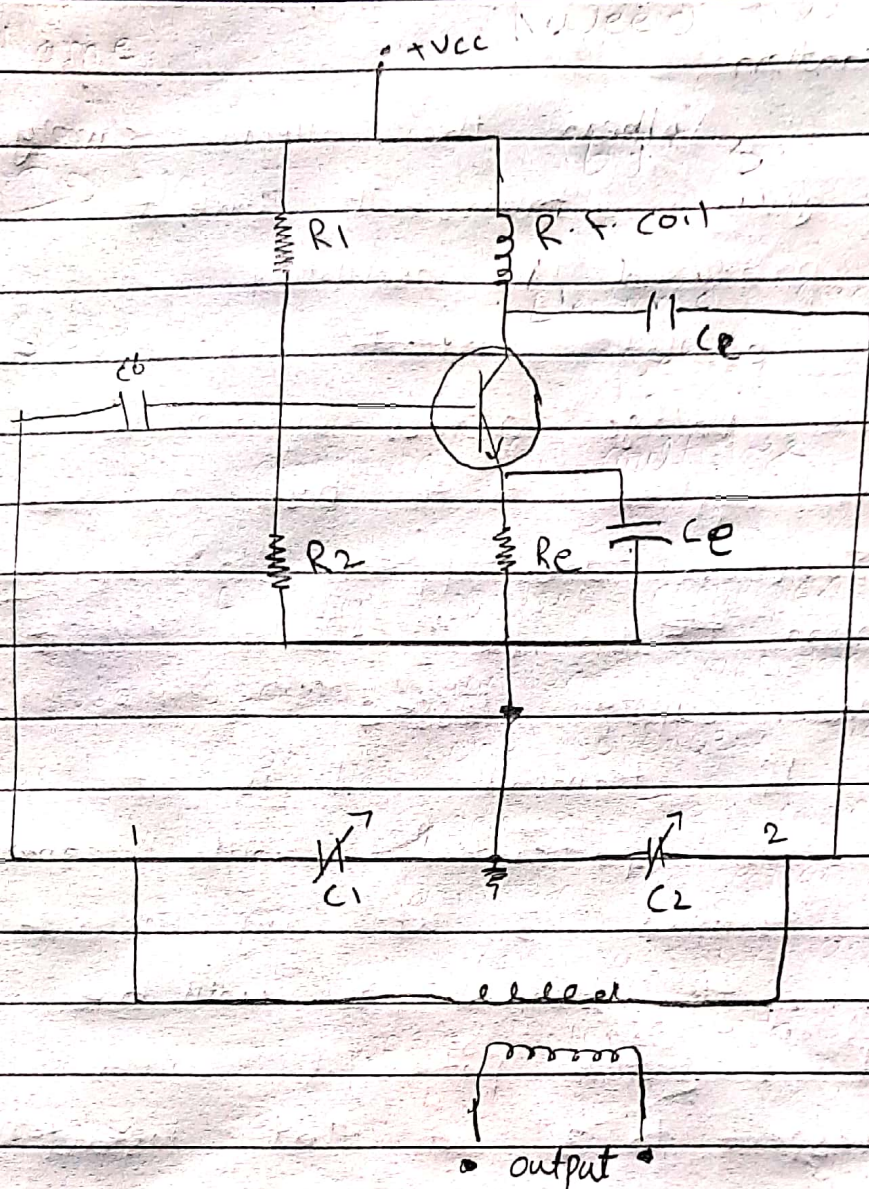 +VCC
R1
R.f. coil
Ce
Cb
R2
Re
Ce
1
2
C1
C2
output